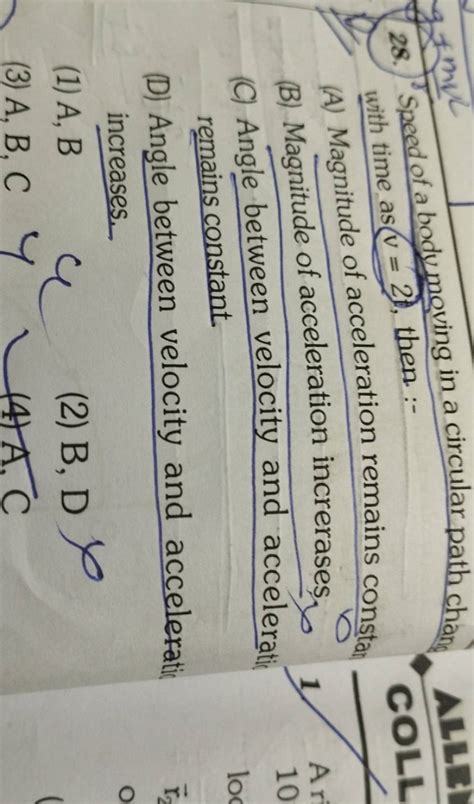 g + mvL
28. Speed of a body moving in a circular path chang
with time as v = 2t, then :-
(A) Magnitude of acceleration remains constan
(B) Magnitude of acceleration increrases.
(C) Angle between velocity and acceleratio
remains constant.
(D) Angle between velocity and acceleratio
increases.
(1) A, B (2) B, D
(3) A, B, C (4) A, C
ALLE
COLL
1
A r
10
loc
r⃗₂
o
(